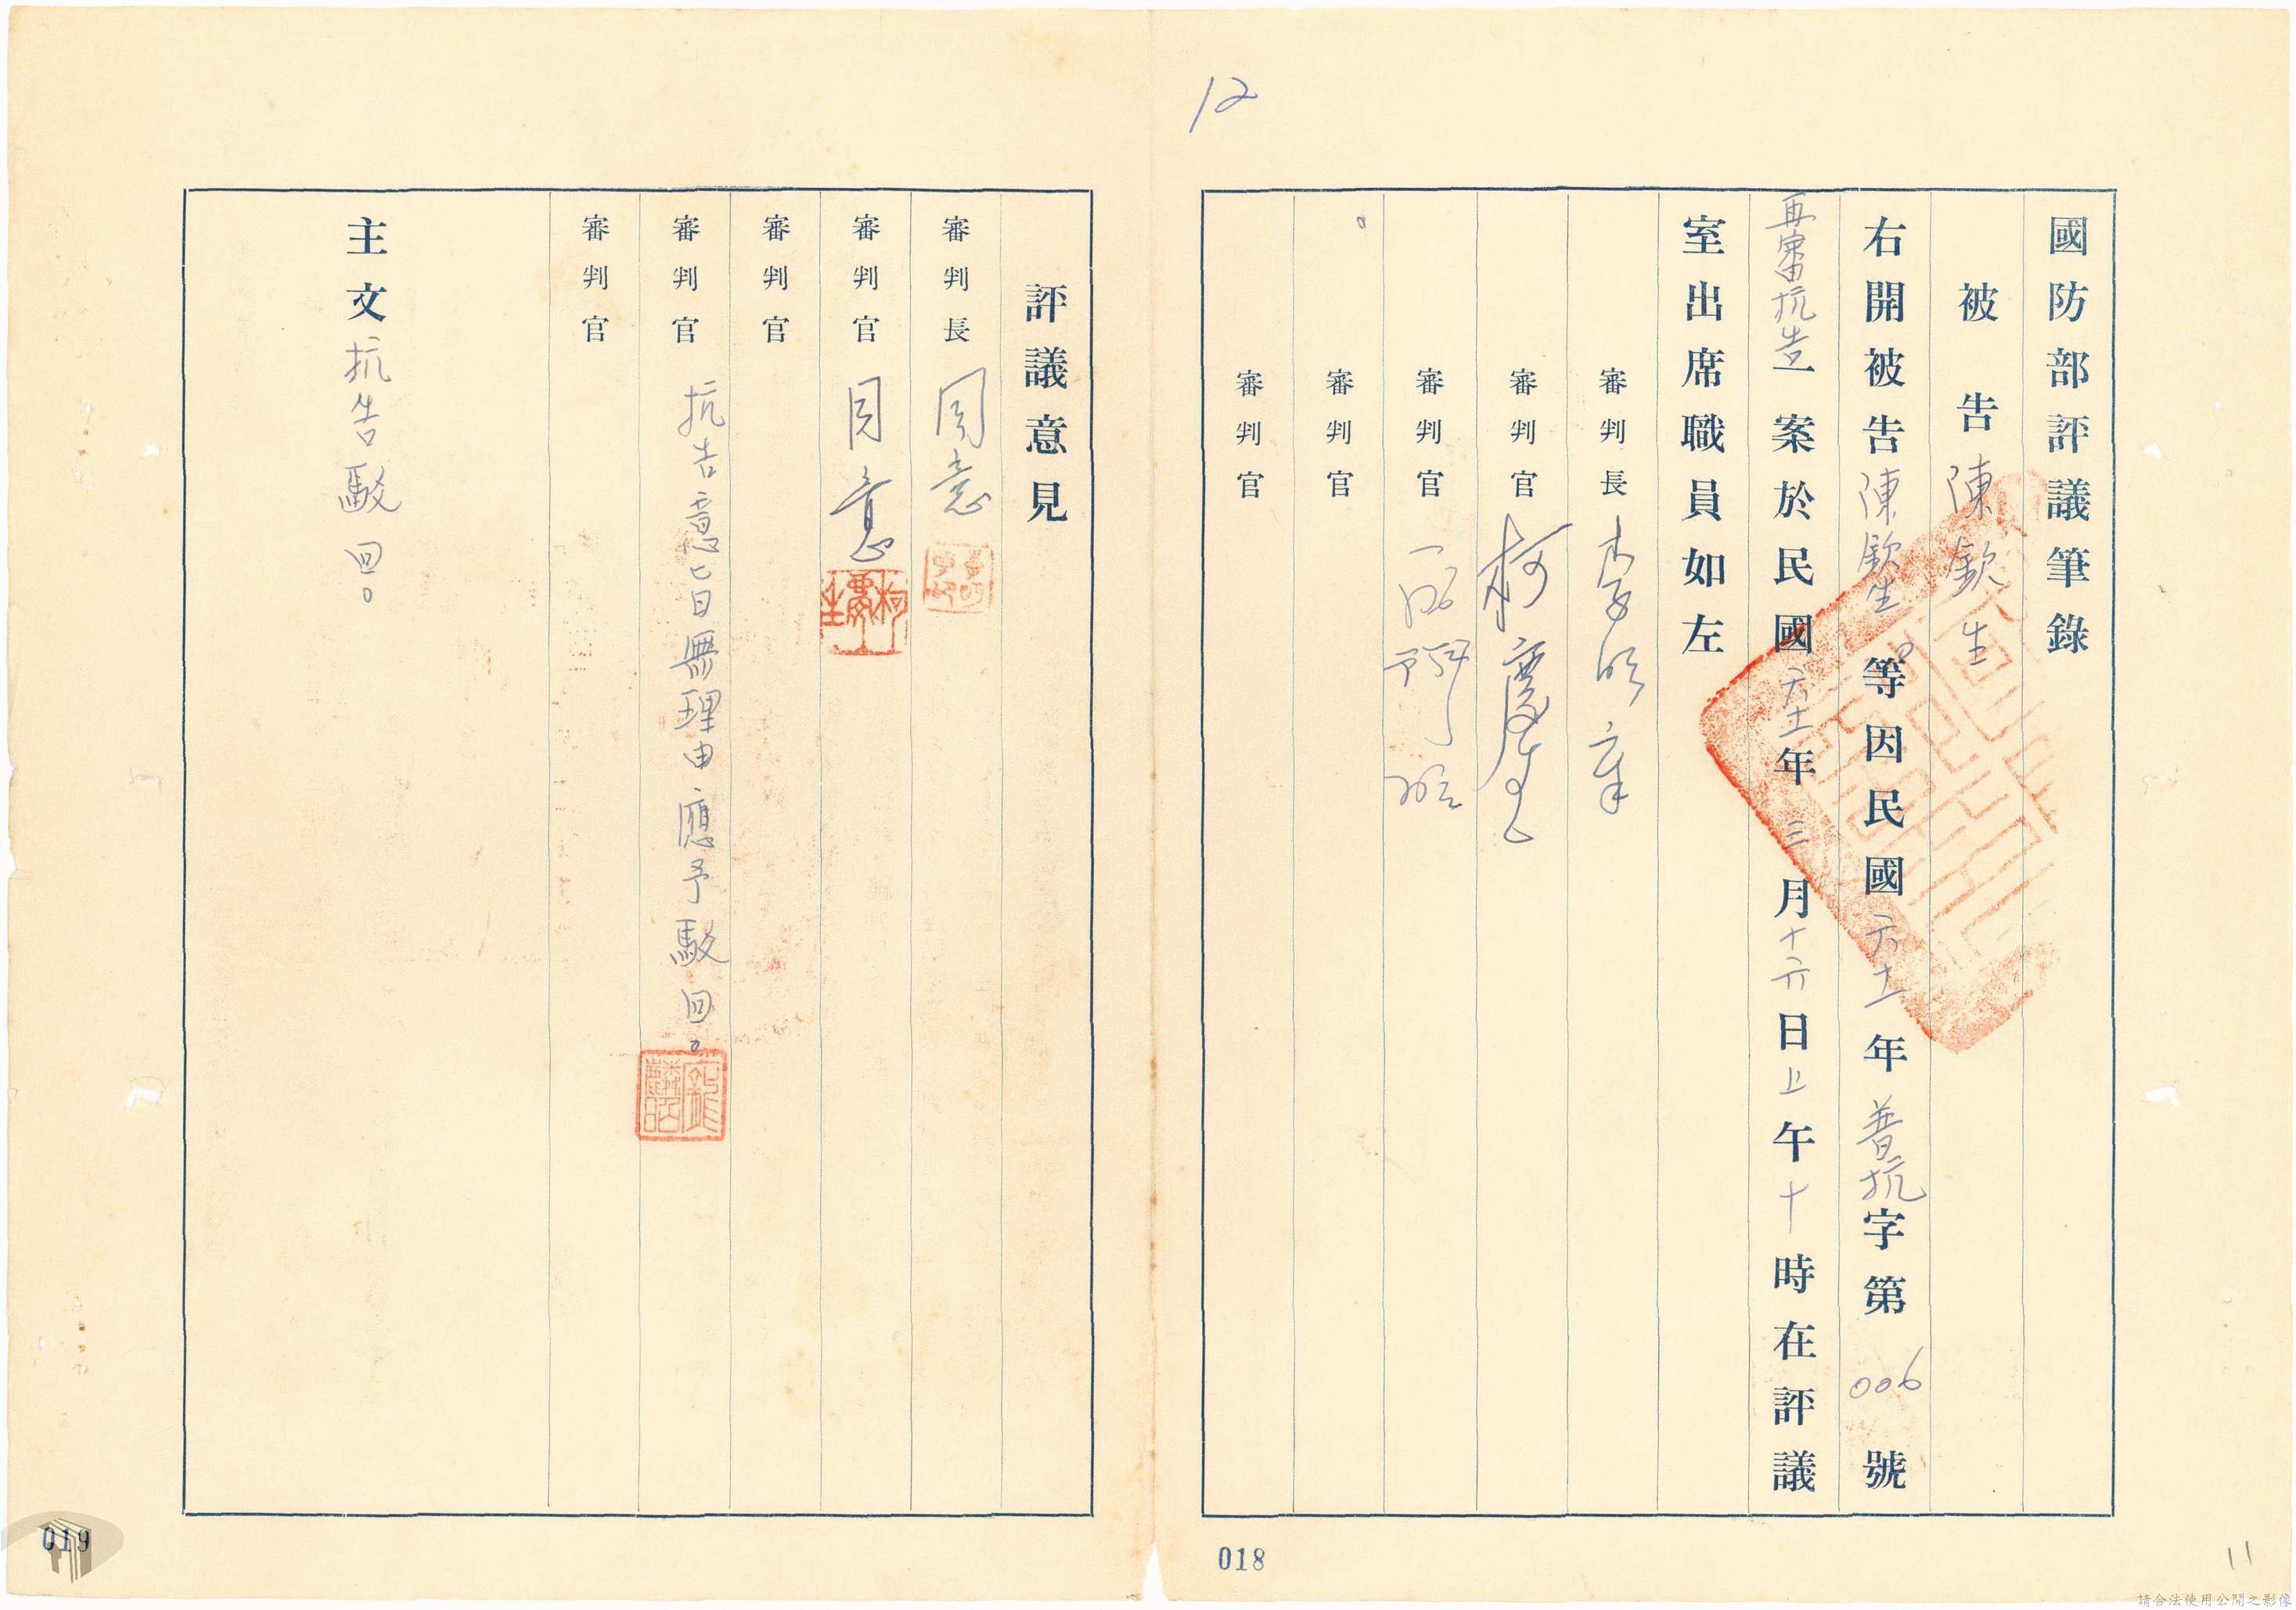 12
國防部評議筆錄
被告陳欽生
右開被告陳欽生等因民國六十一年普抗字第006號
再審抗告一案於民國六十一年三月十六日上午十時在評議
室出席職員如左
審判長
審判官 柯慶生
審判官
審判官
審判官
018
11
評議意見
審判長 同意
審判官 同意
審判官
審判官 抗告意旨無理由應予駁回。
審判官
主文 抗告駁回。
019
請合法使用公開之影像